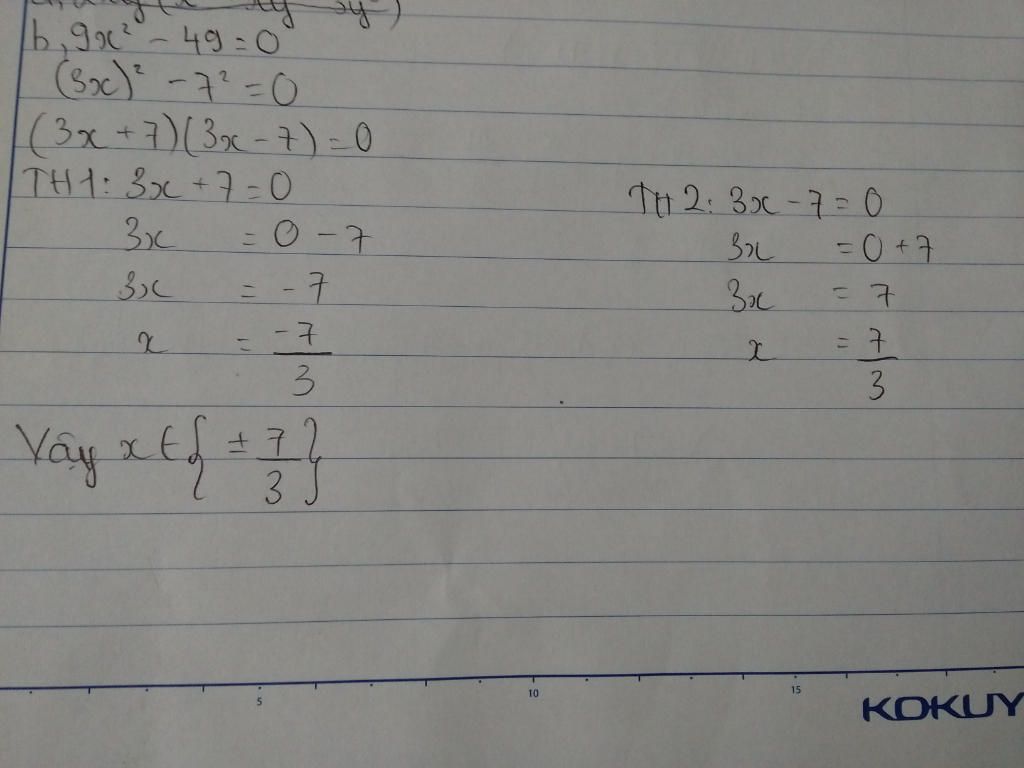 b, 9x² - 49 = 0
(3x)² - 7² = 0
(3x + 7)(3x - 7) = 0
TH1: 3x + 7 = 0
3x = 0 - 7
3x = -7
x = -7/3
TH2: 3x - 7 = 0
3x = 0 + 7
3x = 7
x = 7/3
Vậy x ∈ {± 7/3}
5 10 15
KOKUY